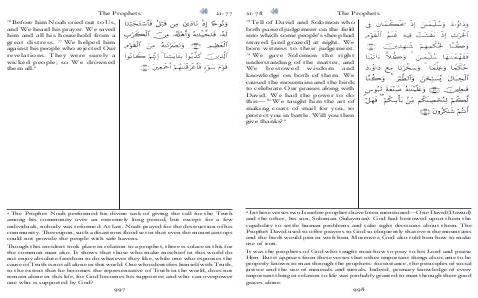 The Prophets 21:77
76 Before him Noah cried out to Us,
and We heard his prayer. We saved
him and all his household from a
great distress. 77 We helped him
against his people who rejected Our
revelations. They were surely a
wicked people, so We drowned
them all.a
وَنُوحًا إِذْ نَادَىٰ مِن قَبْلُ فَٱسْتَجَبْنَا
لَهُۥ فَنَجَّيْنَـٰهُ وَأَهْلَهُۥ مِنَ ٱلْكَرْبِ
ٱلْعَظِيمِ وَنَصَرْنَـٰهُ مِنَ ٱلْقَوْمِ
ٱلَّذِينَ كَذَّبُوا۟ بِـَٔايَـٰتِنَآ إِنَّهُمْ كَانُوا۟
قَوْمَ سَوْءٍ فَأَغْرَقْنَـٰهُمْ أَجْمَعِينَ
a The Prophet Noah performed his divine task of giving the call for the Truth
among his community over an extremely long period, but except for a few
individuals, nobody was reformed. At last, Noah prayed for the destruction of his
community. Thereupon, such a disastrous flood arose that even the mountain tops
could not provide the people with safe havens.
Though this incident took place in relation to a prophet, there is solace in this for
the common man also. It shows that those who make mischief in this world do
not enjoy absolute freedom to do whatever they like, while one who espouses the
cause of Truth is not all alone in this world. One who identifies himself with Truth,
to the extent that he becomes the representative of Truth in the world, does not
remain alone in this life, for God becomes his supporter, and who can overpower
one who is supported by God?
997
21:78 The Prophets
78 Tell of David and Solomon who
both passed judgement on the field
into which some people's sheep had
strayed [and grazed] at night. We
bore witness to their judgement.
79 We gave Solomon the right
understanding of the matter, and
We bestowed wisdom and
knowledge on both of them. We
caused the mountains and the birds
to celebrate Our praises along with
David. We had the power to do
this— 80 We taught him the art of
making coats of mail for you, to
protect you in battle. Will you then
give thanks?a
وَدَاوُۥدَ وَسُلَيْمَـٰنَ إِذْ يَحْكُمَانِ فِى
ٱلْحَرْثِ إِذْ نَفَشَتْ فِيهِ غَنَمُ ٱلْقَوْمِ
وَكُنَّا لِحُكْمِهِمْ شَـٰهِدِينَ
فَفَهَّمْنَـٰهَا سُلَيْمَـٰنَ وَكُلًّا ءَاتَيْنَا
حُكْمًا وَعِلْمًا وَسَخَّرْنَا مَعَ دَاوُۥدَ
ٱلْجِبَالَ يُسَبِّحْنَ وَٱلطَّيْرَ وَكُنَّا
فَـٰعِلِينَ وَعَلَّمْنَـٰهُ صَنْعَةَ لَبُوسٍ
لَّكُمْ لِتُحْصِنَكُم مِّنۢ بَأْسِكُمْ فَهَلْ
أَنتُمْ شَـٰكِرُونَ
a In these verses two Israelite prophets have been mentioned—One David (Dawud)
and the other, his son, Solomon (Sulayman). God had bestowed upon them the
capability to set the human problems and take right decisions about them. The
Prophet David used to offer prayers to God so eloquently that even the mountains
and the birds would join in with him. Moreover, God also told him how to make
use of iron.
It was the prophets of God who taught man how to pray to his Lord and praise
Him. But it appears from these verses that other important things also came to be
properly known to man through the prophets: for instance, the principles of social
justice and the use of minerals and metals. Indeed, primary knowledge of every
important thing in relation to life was probably granted to man through these good
graces alone.
998